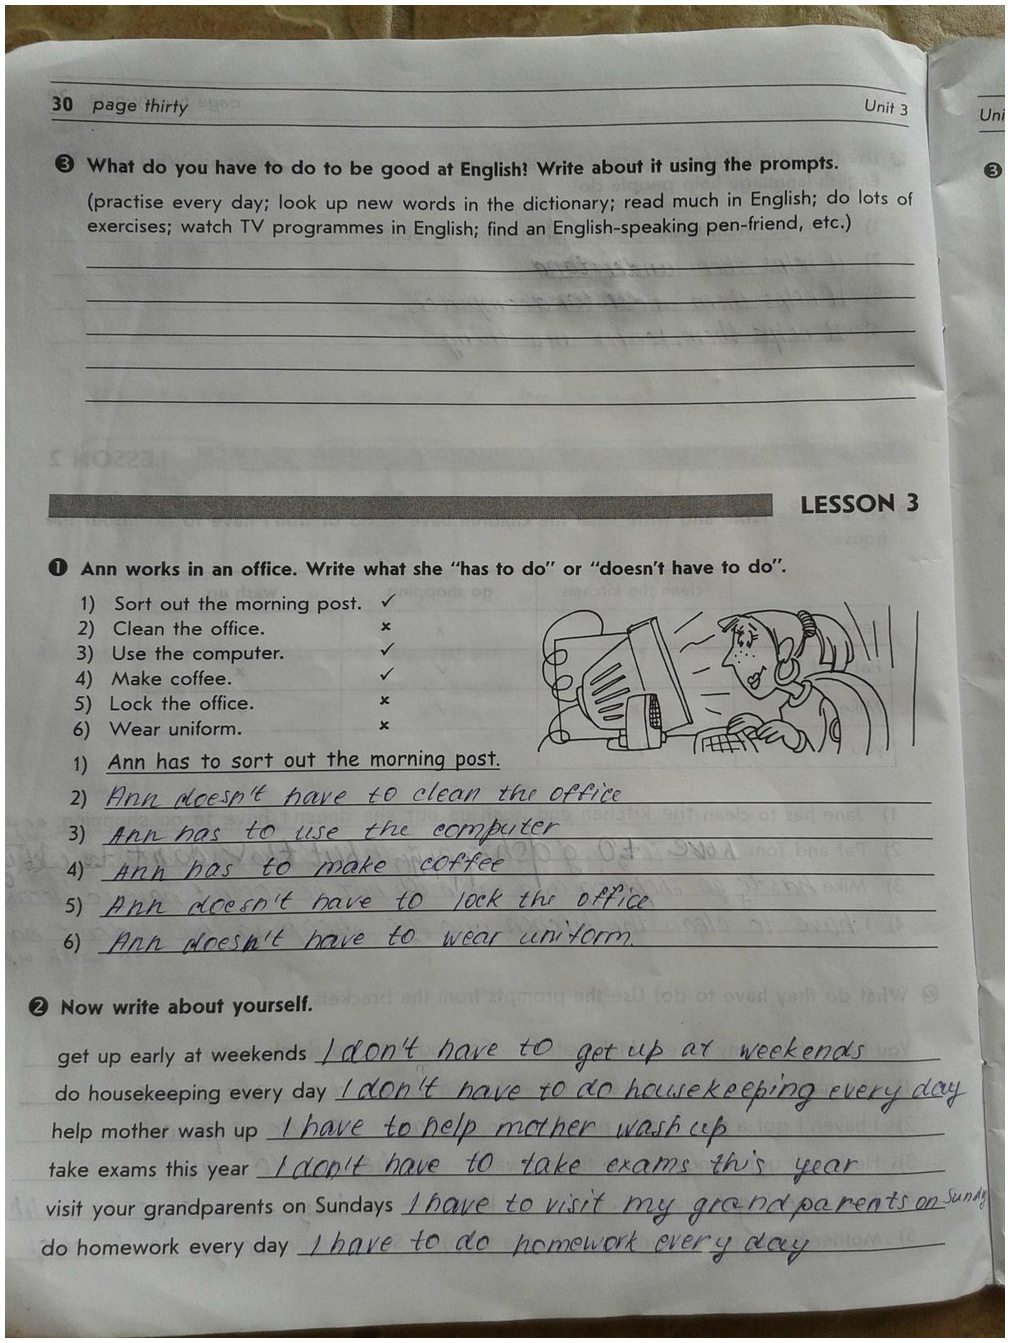 30 page thirty Unit 3
Uni
❸ What do you have to do to be good at English? Write about it using the prompts.
❸
(practise every day; look up new words in the dictionary; read much in English; do lots of
exercises; watch TV programmes in English; find an English-speaking pen-friend, etc.)
LESSON 3
❶ Ann works in an office. Write what she “has to do” or “doesn’t have to do”.
1) Sort out the morning post. ✓
2) Clean the office. ×
3) Use the computer. ✓
4) Make coffee. ✓
5) Lock the office. ×
6) Wear uniform. ×
1) Ann has to sort out the morning post.
2) Ann doesn't have to clean the office
3) Ann has to use the computer
4) Ann has to make coffee
5) Ann doesn't have to lock the office
6) Ann doesn't have to wear uniform.
❷ Now write about yourself.
get up early at weekends I don't have to get up at weekends
do housekeeping every day I don't have to do housekeeping every day
help mother wash up I have to help mother wash up
take exams this year I don't have to take exams this year
visit your grandparents on Sundays I have to visit my grandparents on Sunday
do homework every day I have to do homework every day